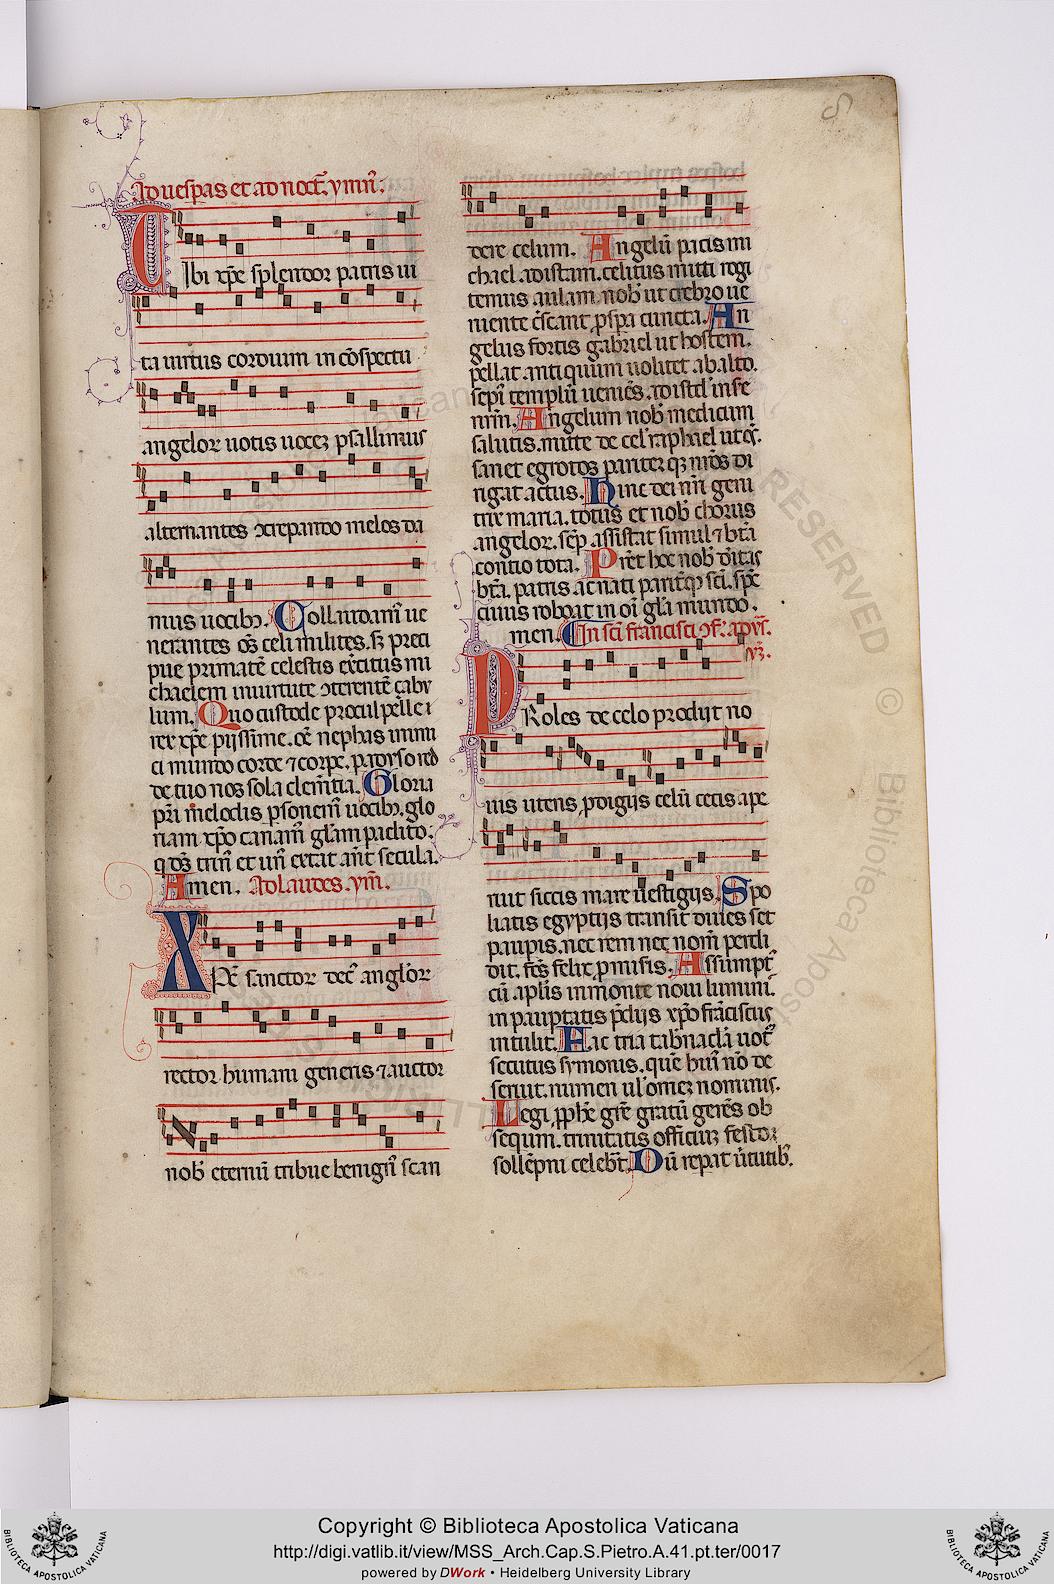 Ad uesp̃as et ad noct̃. ymñ.
Tibi xp̃e splendor patris ui
ta uirtus cordium in cõspectu
angelor uotis uocez psallimus
alternantes ɔcrepando melos da
mus uocibꝫ. Collaudam̃ ue
nerantes om̃s celi milites. sꝫ preci
pue primatẽ celestis ex̃citus mi
chaelem in uirtute ɔterentẽ zabu
lum. Quo custode procul pelle
rex xp̃e pijssime. om̃e nephas inimi
ci mundo corde ⁊ corpe. paradyso red
de tuo nos sola clem̃tia. Gloria
pr̃i melodis psonem̃ uocibꝫ. glo
riam xp̃o canam̃ gl̃am paclito.
q ds̃ trin̄ et un̄ extat an̄t secula.
Amen. Ad laudes. ym̃.
Xp̃e sanctor dec̃ anglor
rector humani generis ⁊ auctor
nob̃ eternū tribue benign̄ scan
dere celum. Angelū pacis mi
chael ad istam. celitus mitti rogi
temus aulam. nob̃ ut crebro ue
niente c̃scant psp̃a cuncta. An
gelus fortis gabriel ut hostem.
pellat antiquum uolitet ab alto.
sepi templū ueniẽs. ad istd̃ infe
rim̃. Angelum nob̃ medicum
salutis. mitte de cel̃ raphael ut om̃s.
sanet egrotos pariter qꝫ nr̃os di
rigat actus. Hinc dei nr̃i geni
trix maria. totus et nob̃ chorus
angelor. semp̃ assistat simul ⁊ bt̃a
contio tota. Prẽt hoc nob̃ deitas
bt̃a. patris ac nati paritẽqꝫ sc̃i. sp̃c
cuius reboat in om̃i gl̃a mundo.
men. In sc̃i francisci ɔf. ad ues̃.
ym̃.
Proles de celo prodijt no
uis utens prodigijs celū cecis ape
ruit siccis mare uestigijs. Spo
liatis egyptijs transit diues set
paupis. nec rem nec nom̃ perdi
dit. felix p miseris. Assumpt̃
cū aplĩs in monte noui luminis̃.
in paupertatis p̃dijs xp̃o frãciscus
intulit. Fac tria tab̃nacla uot̃
secutus symonis. quẽ huĩ nõ de
seruit. numen ul̃ omez nominis.
Legi prophe gr̃e gratū gerẽs ob
sequm. trinitatis officiuꝫ festo
sollẽpni celebr̃t. Dū repat uirtutib̃.
Copyright © Biblioteca Apostolica Vaticana
http://digi.vatlib.it/view/MSS_Arch.Cap.S.Pietro.A.41.pt.ter/0017
powered by DWork • Heidelberg University Library
BIBLIOTECA APOSTOLICA VATICANA
BIBLIOTECA APOSTOLICA VATICANA